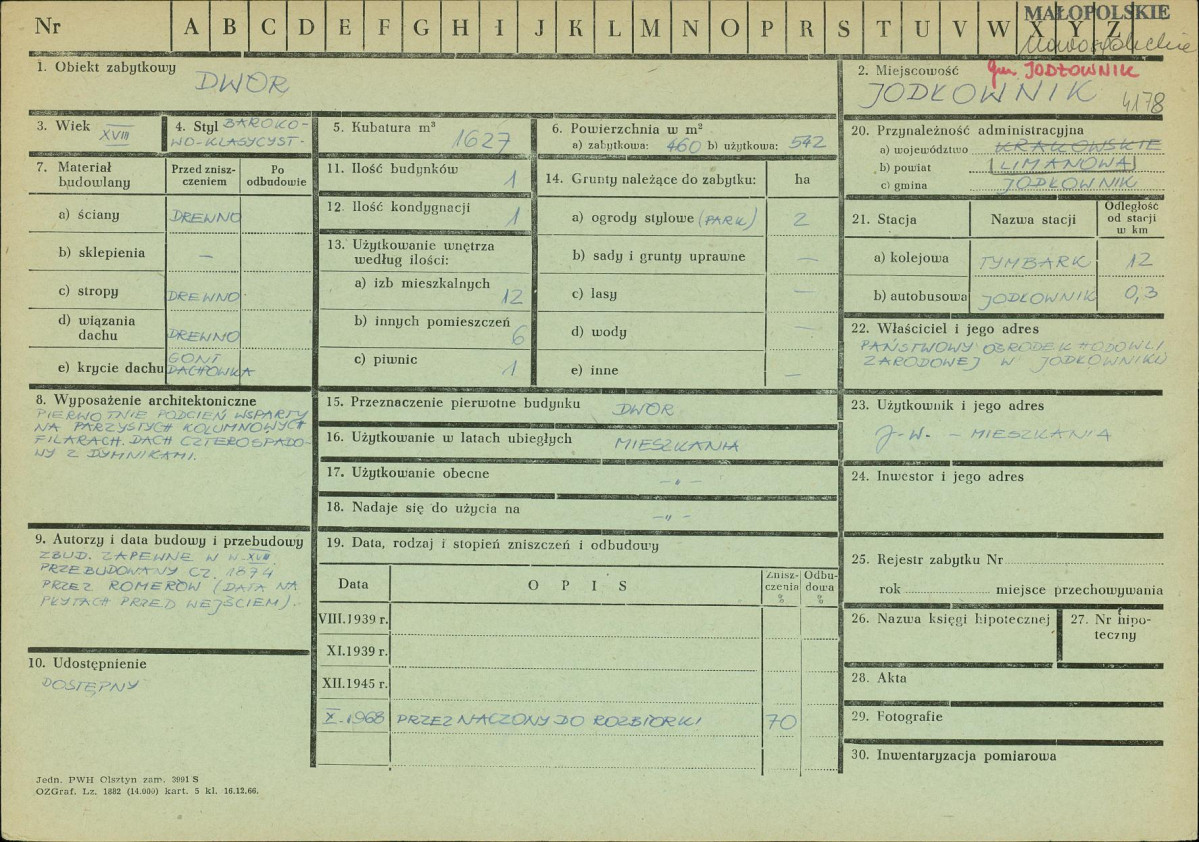 Nr A B C D E F G H I J K L M N O P R S T U V W X Y Z
MAŁOPOLSKIE
Nowosądeckie
1. Obiekt zabytkowy
DWÓR
2. Miejscowość gm. JODŁOWNIK
JODŁOWNIK 4178
3. Wiek XVIII
4. Styl BAROKO-
WO-KLASYCYST.
5. Kubatura m³ 1627
6. Powierzchnia w m²
a) zabytkowa: 460 b) użytkowa: 542
7. Materiał budowlany
Przed znisz-
czeniem
Po
odbudowie
a) ściany DREWNO
b) sklepienia —
c) stropy DREWNO
d) wiązania
dachu DREWNO
e) krycie dachu GONT
DACHÓWKA
8. Wyposażenie architektoniczne
PIERWOTNIE PODCIEŃ WSPARTY
NA PARZYSTYCH KOLUMNOWYCH
FILARACH. DACH CZTEROSPADO-
WY Z DYMNIKAMI.
9. Autorzy i data budowy i przebudowy
ZBUD. ZAPEWNE W W. XVIII
PRZEBUDOWANY CZ. 1874
PRZEZ ROMERÓW (DATA NA
PŁYTACH PRZED WEJŚCIEM).
10. Udostępnienie
DOSTĘPNY
11. Ilość budynków 1
12. Ilość kondygnacji 1
13. Użytkowanie wnętrza
według ilości:
a) izb mieszkalnych 12
b) innych pomieszczeń 6
c) piwnic 1
14. Grunty należące do zabytku: ha
a) ogrody stylowe (PARK) 2
b) sady i grunty uprawne —
c) lasy —
d) wody —
e) inne —
15. Przeznaczenie pierwotne budynku DWÓR
16. Użytkowanie w latach ubiegłych MIESZKANIA
17. Użytkowanie obecne —"—
18. Nadaje się do użycia na —"—
19. Data, rodzaj i stopień zniszczeń i odbudowy
Data OPIS Znisz-
czenia
%
Odbu-
dowa
%
VIII.1939 r.
XI.1939 r.
XII.1945 r.
X.1968 PRZEZNACZONY DO ROZBIÓRKI 70
20. Przynależność administracyjna
a) województwo KRAKOWSKIE
b) powiat LIMANOWA
c) gmina JODŁOWNIK
21. Stacja Nazwa stacji Odległość
od stacji
w km
a) kolejowa TYMBARK 12
b) autobusowa JODŁOWNIK 0,3
22. Właściciel i jego adres
PAŃSTWOWY OŚRODEK HODOWLI
ZARODOWEJ W JODŁOWNIKU
23. Użytkownik i jego adres
J-W. - MIESZKANIA
24. Inwestor i jego adres
25. Rejestr zabytku Nr
rok miejsce przechowywania
26. Nazwa księgi hipotecznej
27. Nr hipo-
teczny
28. Akta
29. Fotografie
30. Inwentaryzacja pomiarowa
Jedn. PWH Olsztyn zam. 3991 S
OZGraf. Lz. 1882 (14.000) kart. 5 kl. 16.12.66.